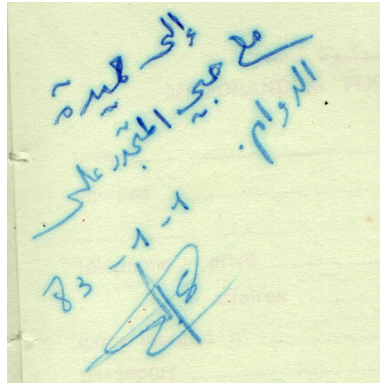 إلى حميدة
مع حبي المتجدد على
الدوام.
83-1-1